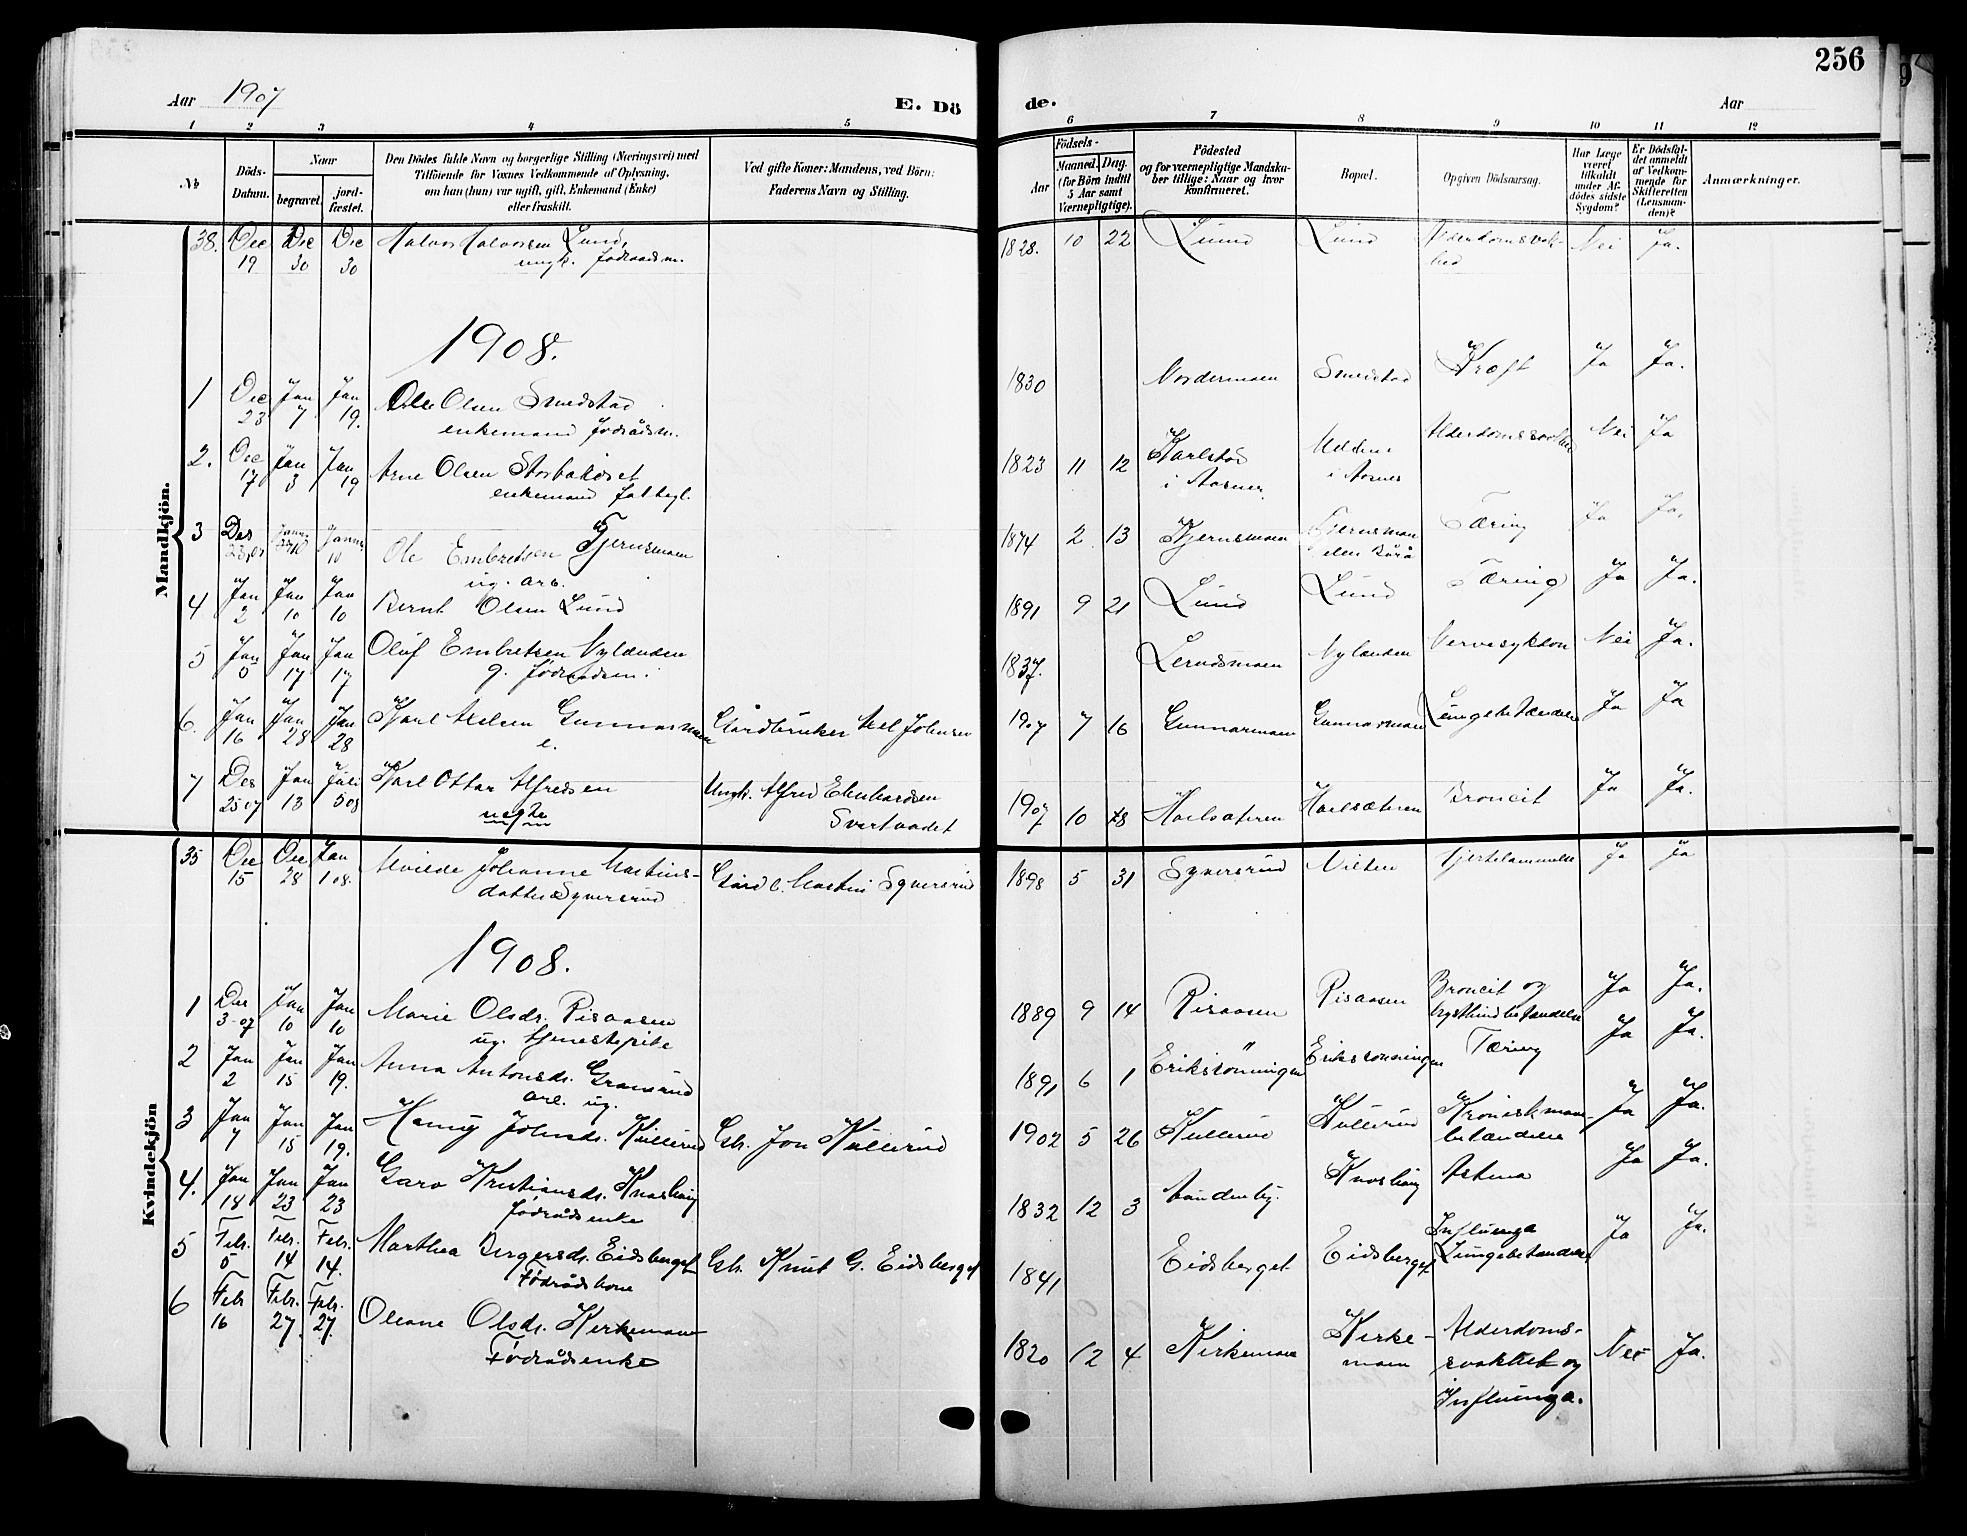 256
Aar 1907
E. Dö
de.
Aar
1 2 3 4 5 6 7 8 9 10 11 12
No
Döds-Datum.
Naar
begravet.
jordfæstet.
Den Dödes fulde Navn og borgerlige Stilling (Næringsvei) med
Tilföiende for Voxnes Vedkommende af Oplysning,
om han (hun) var ugift, gift, Enkemand (Enke)
eller fraskilt.
Ved gifte Koner: Mandens, ved Börn:
Faderens Navn og Stilling.
Födsels-
Aar
Maaned.
Dag.
(for Börn indtil
5 Aar samt
Værnepligtige).
Födested
og for værnepligtige Mandska-
ber tillige: Naar og hvor
konfirmeret.
Bopæl.
Opgiven Dödsaarsag.
Har Læge
været
tilkaldt
under Af-
dödes sidste
Sygdom?
Er Dödsfal-
det anmeldt
af Vedkom-
mende for
Skifteretten
(Lensman-
den)?
Anmærkninger.
Mandkjön.
38. Dec 19 Dec 30 Dec 30 Halvor Halvorsen Lund, 1828. 10 22 Lund Lund Nei Ja.
ungk. föderaadsm.
1908.
1 Dec 23 Jan 7 Jan 19. Ole Olsen Smedstad 1830 Nordermoen Smedstad Kræft Ja Ja.
enkemand föderådsm.
2. Dec 17 Jan 3 Jan 19 Arne Olsen Storbakaset 1823 11 12 Karlstad i Aasnes i Aasnes Nei Ja
enkemand
3 Des 23/07 10 Januar 10 Ole Embretsen Tjernsmoen 1874 2 13 Kjernsmoen Tjernsmoen Tæring Ja Ja.
ug. arb.
4 Jan 2 Jan 10 Jan 10 Bernt Olsen Lund 1891 9 21 Lund Lund Tæring Ja Ja.
5 Jan 5 Jan 17 Jan 17 Oluf Embretsen Nylænden 1837. Nylænden Nervesykdom Nei Ja.
g. föderaadsm.
6. Jan 16 Jan 28 Jan 28 Karl Axelsen Gunnarsmoen Gårdbruker Axel Johnsen 1907 7 16 Gunnarmoen Gunnarmoen Lungebetændelse Ja Ja
e.
7 Des 25 07 Jan 13 Juli 5 08 Karl Ottar Alfredsen Ungk. Alfred Ehnhardsen 1907 10 28 Hoelsæteren Hoelsæteren Broncit Ja Ja.
uegte Svartvadet
Kvindekjön
35 Dec 15 Dec 28 Jan 1 08. Hvilde Johanne Martins- Gård e. Martin Syversrud 1898 5 31 Syversrud Hjertelammelse Ja Ja
datter Syversrud
1908.
1 Des 3-07 Jan 10 Jan 10 Marie Olsdr. Risaasen 1889 9 14 Risaasen Risaasen Broncit og Ja Ja.
ug. tjenestepike brysthindebetændelse
2 Jan 2 Jan 15 Jan 19. Anna Antonsdr. Gransrud 1891 6 1 Eriksrönningen Eriksrönningen Tæring Ja Ja.
arb. ug.
3 Jan 7 Jan 15 Jan 19. Hanny Johnsdr. Kullerud Gb. Jon Kullerud 1902 5 26 Kullerud Kullerud Kronisk mave- Ja Ja.
betændelse
4. Jan 18 Jan 23 Jan 23 Garo Kristiansdr. Knashaug 1832 12 3 Sandenby. Knashaug Astma Ja Ja.
föderådsenke
5 Febr. 5 Febr. 14 Febr. 14. Marthea Bergersdr. Eidsberget Gb. Knut G. Eidsberget 1841 Eidsberget Eidsberget Influenza Ja Ja.
Föderådskone Lungebetændelse
6 Febr 16 Febr. 27. Febr. 27. Oleane Olsdr. Kirkemoen 1820 12 4 Kirkemoen Kirke- Alderdoms- Nei Ja.
Föderådsenke moen svakhet og
Influenza.